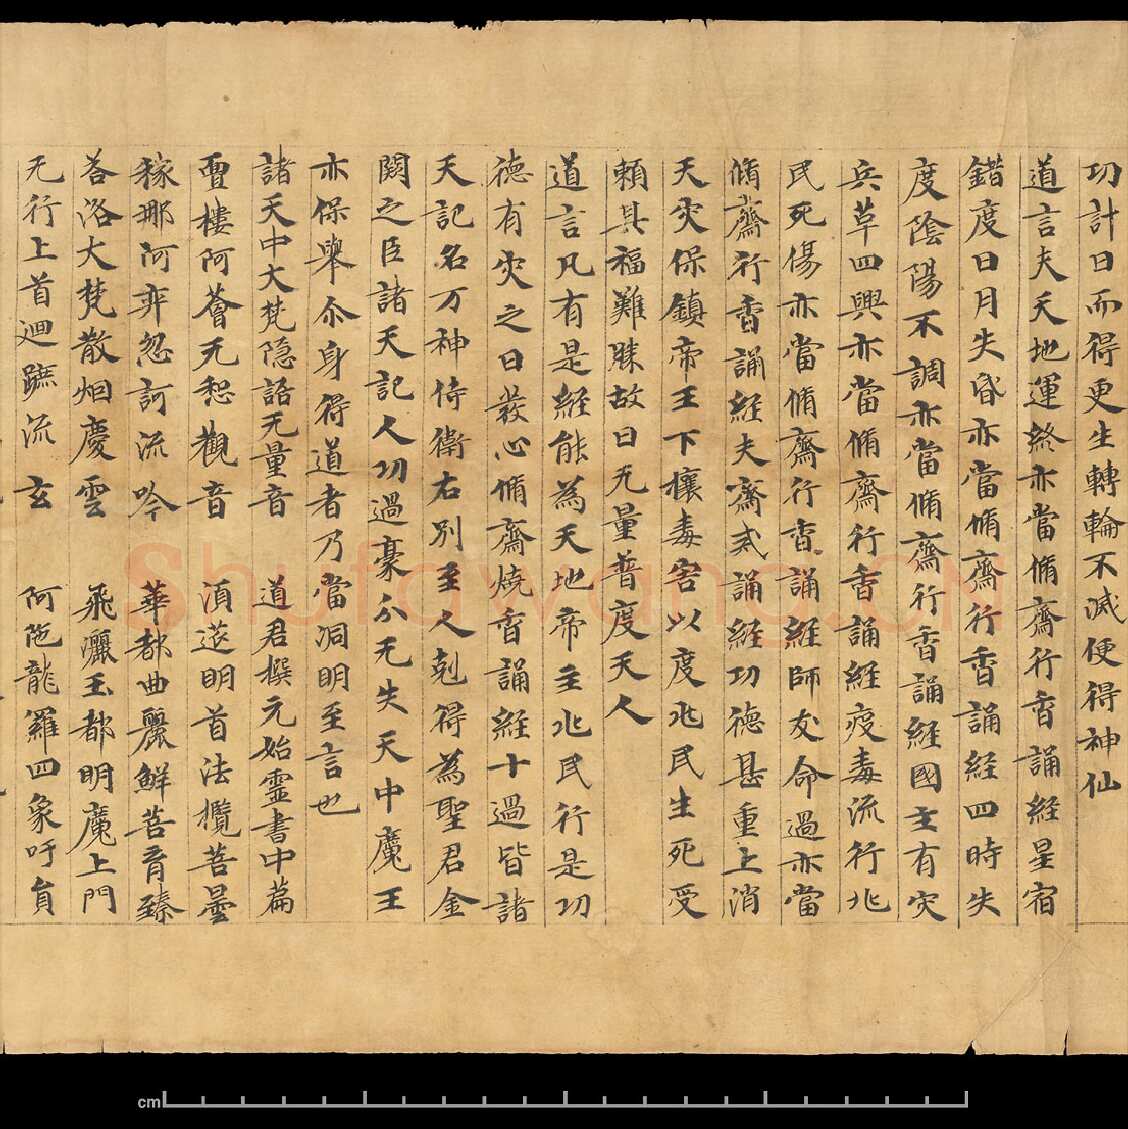 功計日而得更生轉輪不滅便得神仙
道言夫天地運終亦當脩齋行香誦經星宿
錯度日月失昏亦當脩齋行香誦經四時失
度陰陽不調亦當脩齋行香誦經國主有灾
兵革四興亦當脩齋行香誦經疫毒流行兆
民死傷亦當脩齋行香誦經師友命過亦當
脩齋行香誦經夫齋戒誦經功德甚重上消
天灾保鎮帝王下禳毒害以度兆民生死受
賴其福難勝故曰无量普度天人
道言凡有是經能為天地帝主兆民行是功
德有灾之日發心脩齋燒香誦經十過皆諸
天記名万神侍衛右別至人剋得為聖君金
闕之臣諸天記人功過豪分无失天中魔王
亦保舉尒身得道者乃當洞明至言也
諸天中大梵隱語无量音 道君撰元始靈書中篇
亶樓阿薈无惒觀音 湏莚明首法欖菩曇
稼那阿弈忽訶流吟 華都曲麗鮮菩育臻
荅洛大梵散烟慶雲 飛灑玉都明魔上門
无行上首廻蹠流玄 阿陁龍羅四象吁員
cm
Shufawang.CN